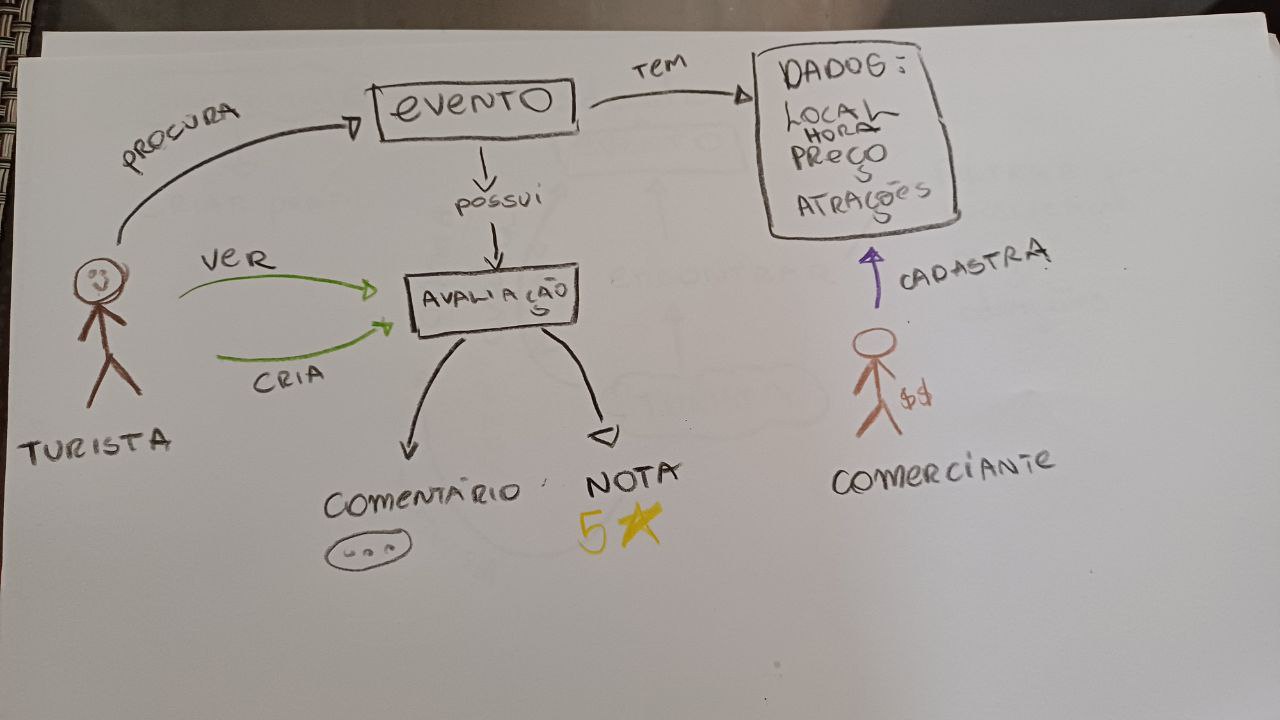 PROCURA
EVENTO
TEM
DADOS:
LOCAL
HORA
PREÇO
ATRAÇÕES
POSSUI
VER
AVALIAÇÃO
CRIA
CADASTRA
$$
TURISTA
COMENTÁRIO
...
NOTA
5
COMERCIANTE